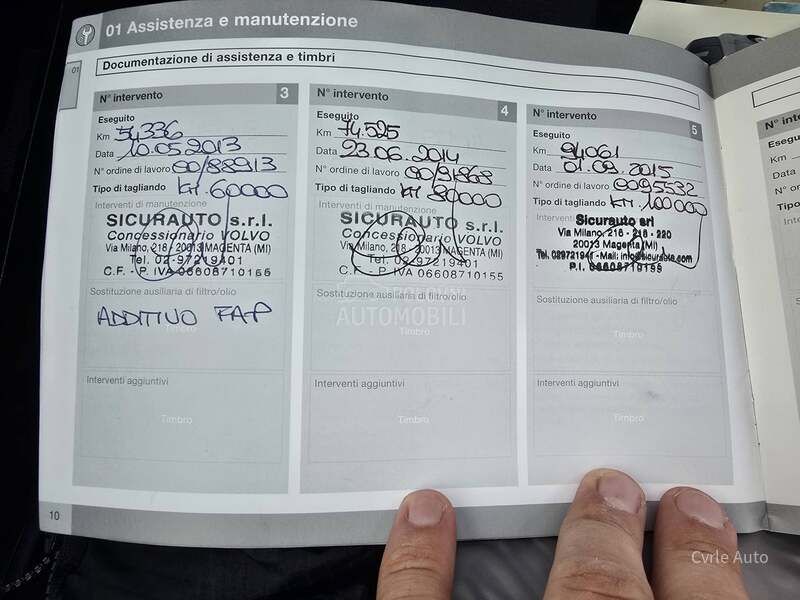 01 Assistenza e manutenzione
01
Documentazione di assistenza e timbri
N° intervento 3
Eseguito
Km 54336
Data 10.05.2013
N° ordine di lavoro 00/88913
Tipo di tagliando KM. 60000
Interventi di manutenzione
SICURAUTO s.r.l.
Concessionario VOLVO
Via Milano, 218 - 20013 MAGENTA (MI)
Tel. 02-97219401
C.F. - P. IVA 06608710155
Sostituzione ausiliaria di filtro/olio
ADDITIVO FAP
Interventi aggiuntivi
Timbro
N° intervento 4
Eseguito
Km 74.525
Data 23.06.2014
N° ordine di lavoro 00/91868
Tipo di tagliando KM 80000
Interventi di manutenzione
SICURAUTO s.r.l.
Concessionario VOLVO
Via Milano, 218 - 20013 MAGENTA (MI)
Tel. 02-97219401
C.F. - P. IVA 06608710155
Sostituzione ausiliaria di filtro/olio
POLOVNI
AUTOMOBILI
Timbro
Interventi aggiuntivi
Timbro
N° intervento 5
Eseguito
Km 94061
Data 01.09.2015
N° ordine di lavoro 0095532
Tipo di tagliando KM. 100000
Sicurauto srl
Via Milano, 216 - 218 - 220
20013 Magenta (MI)
Mail: info@sicurauto.com
P.I. 06608710155
Sostituzione ausiliaria di filtro/olio
Timbro
Interventi aggiuntivi
Timbro
10
Cvrle Auto